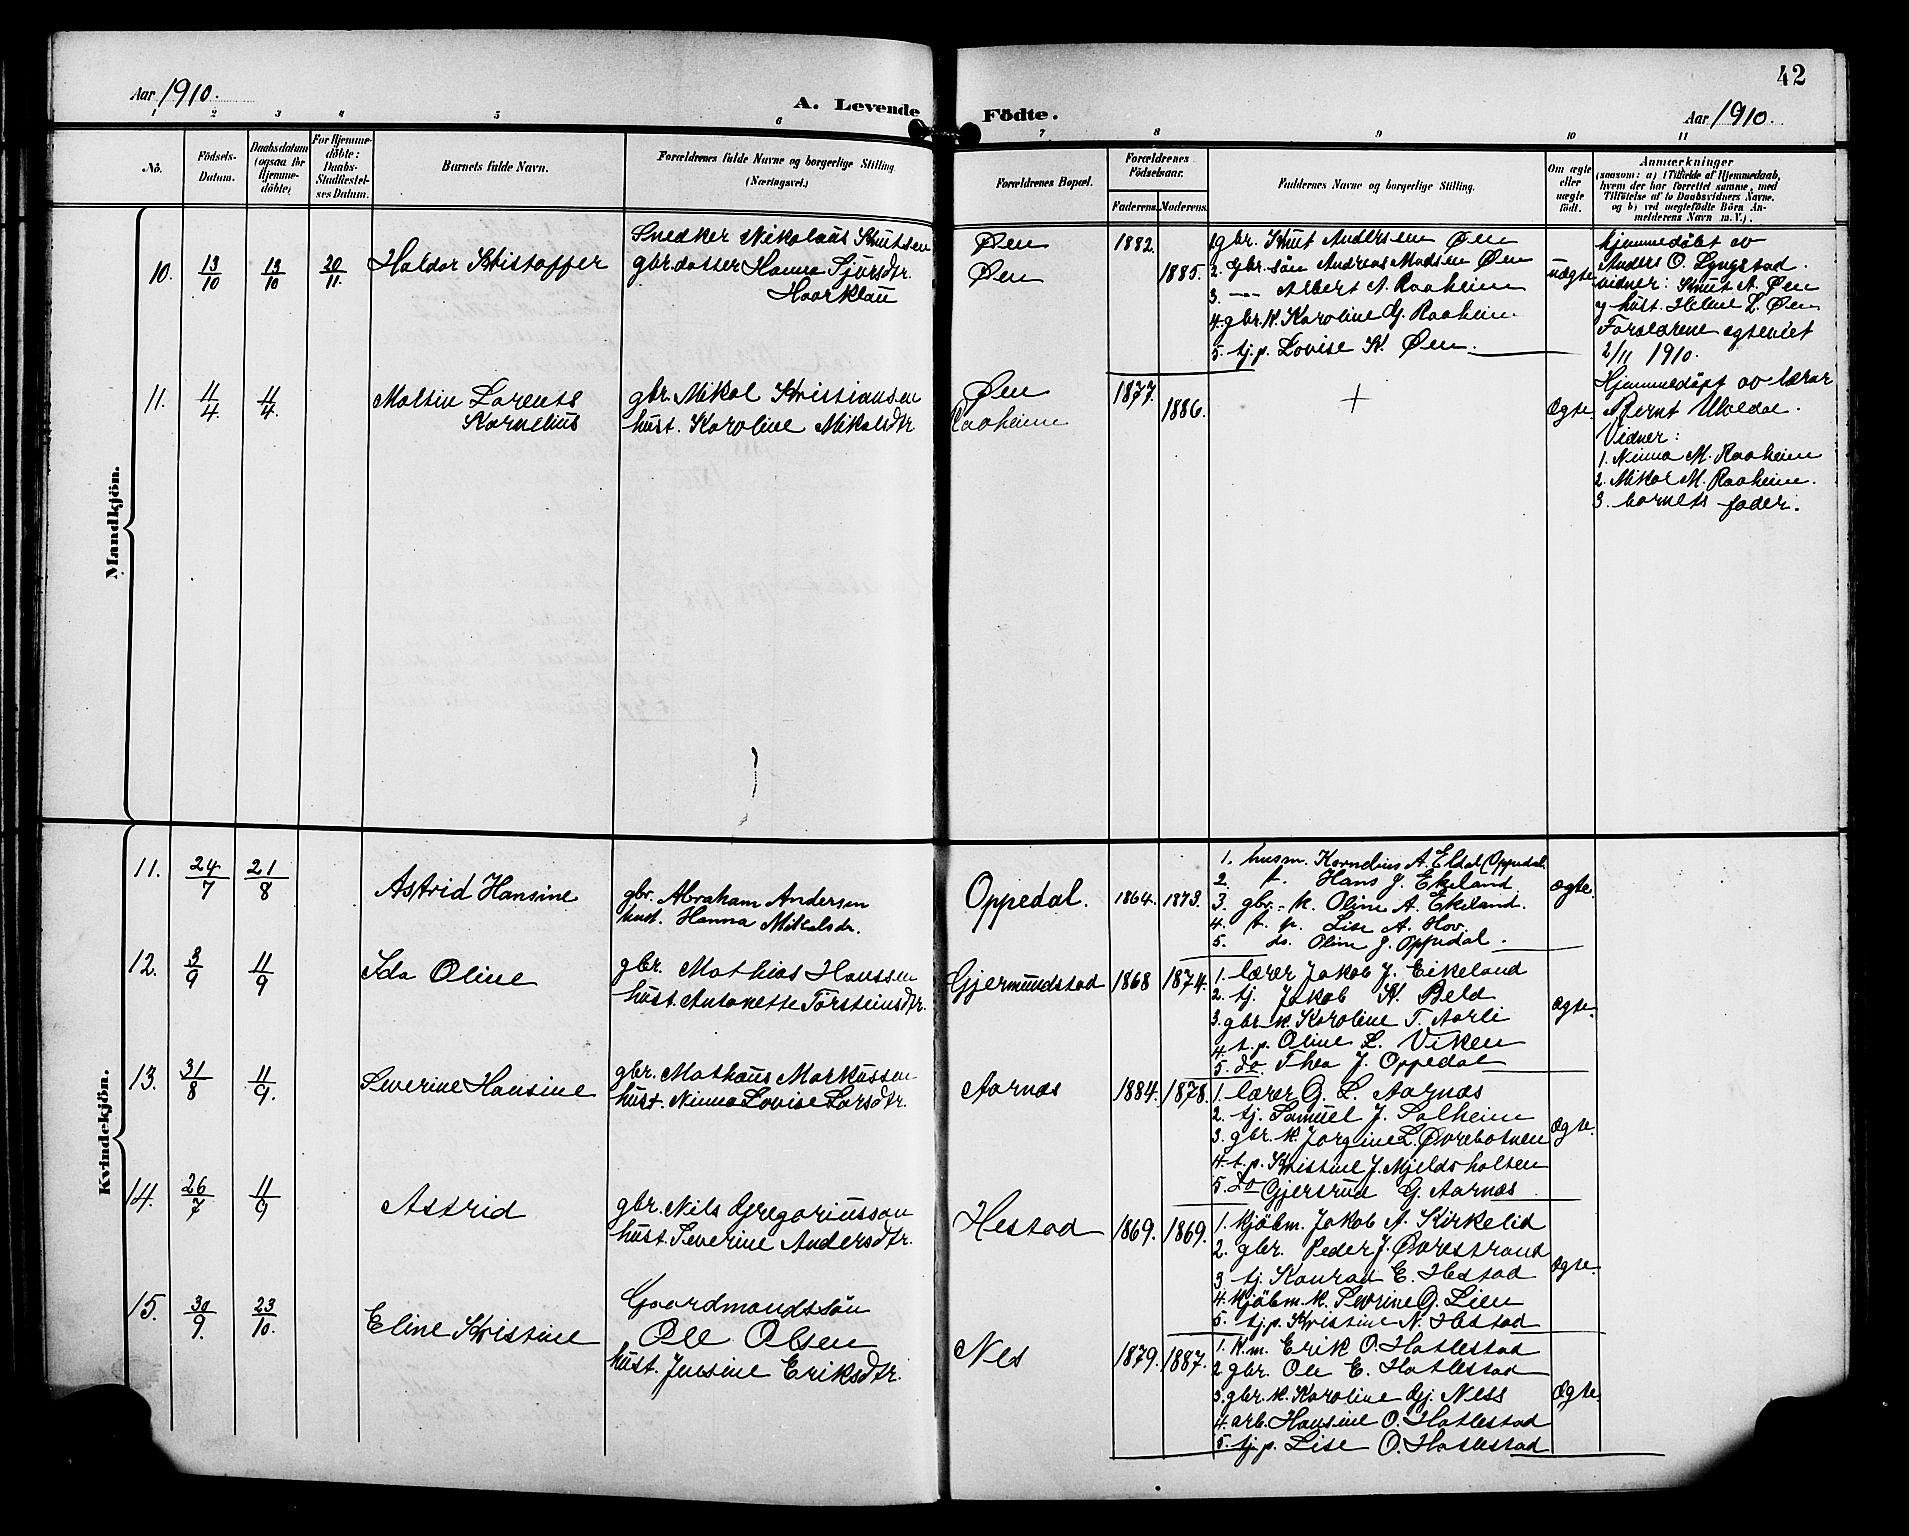 42
Aar 1910.
A. Levende Födte.
Aar 1910.
1 2 3 4 5 6 7 8 9 10 11
No.
Födsels-
Datum.
Daabsdatum
(ogsaa for
Hjemme-
döbte)
For Hjemme-
döbte:
Daabs-
Stadfæstel-
ses Datum.
Barnets fulde Navn.
Forældrenes fulde Navne og borgerlige Stilling
(Næringsvei.)
Forældrenes Bopæl.
Forældrenes
Födselsaar.
Faderens. Moderens.
Faddernes Navne og borgerlige Stilling.
Om ægte
eller
uægte
födt.
Anmærkninger
(saasom: a) i Tilfælde af Hjemmedaab,
hvem der har forrettet samme, med
Tilföielse af to Daabsvidners Navne,
og b) ved uægtefödte Börn An-
melderens Navn m. V.).
Mandkjön.
10. 13/10 13/10 20/11. Haldor Kristoffer
Snedker Nikolaus Knutsen
gbr.datter Hanna Sjursdtr.
Haarklau
Øen
Øen
1882.
1885.
1 gbr. Knut Andersen Øen
2. gbr. søn Andreas Madsen Øen
3. — Albert A. Raaheim
4. gbr. k. Karoline G. Raaheim
5. tj.p. Lovise K. Øen.
uægte
hjemmedøbt av
Anders O. Lyngstad.
vidner: Knut A. Øen
og hust. Helene L. Øen
Forældrene egteviet
2/11 1910.
11. 11/4 11/4. Moltin Lorents
Kornelius
gbr. Mikal Kristiansen
hust. Karoline Mikalsdtr
Øen
Raaheim
1877.
1886.
+
Ægte.
Hjemmedøpt av lærar
Bernt Uldal.
Vidner:
1. Ninna M. Raaheim
2. Mikal M. Raaheim.
3. barnets fader.
Kvindekjön.
11. 24/7 21/8 Astrid Hansine
gbr. Abraham Andersen
hust. Hanna Mikalsdr.
Oppedal.
1864. 1873.
1. husm. Kornelius A. Eldal, Oppedal.
2. t. Hans J. Ekeland
3. gbr. k. Oline A. Ekeland.
4. t. p. Lise A. Hov.
5. do. Oline J. Oppedal.
Ægte.
12. 3/9 11/9 Ida Oline
gbr. Mathias Hanssen
hust. Antonette Torsteinsdtr.
Gjermundstad 1868 1874.
1. lærer Jakob J. Eikeland
2. tj. Jakob K. Beld
3. gbr. k. Karoline T. Aarli
4. t.p. Oline L. Viken
5. do Thea J. Oppedal
Ægte.
13. 31/8 11/9. Severine Hansine
gbr. Mathæus Markussen
hust. Ninna Lovise Larsdtr.
Aarnæs 1884. 1878.
1. lærer G. L. Aarnæs
2. tj. Samuel J. Solheim
3. gbr. k. Jorgine L. Øvrebotnen
4. t.p. Kristine J. Mjeldsholten
5. do Gjertrud G. Aarnæs
Ægte.
14. 26/7 11/9 Astrid
gbr. Nils Gregoriusson
hust. Severine Andersdtr.
Hestad 1869. 1869.
1. kjøbm. Jakob A. Kirkelid
2. gbr. Peder J. Øvrestrand
3 tj. Konrad E. Hestad
4. kjøbm. k. Severine G. Lien
5. tj.p. Kristine N. Hestad
Ægte.
15. 30/9. 23/10. Eline Kristine
Gaardmandssøn
Ole Olsen
hust. Jensine Eriksdtr.
Nes 1879. 1887.
1. K.m. Erik O. Hatlestad
2 gbr. Ole E. Hatlestad
3. gbr. k. Karoline Gj. Ness
4. arb. Hansine O. Hatlestad
5. tj.p. Lise O. Hatlestad
Ægte.